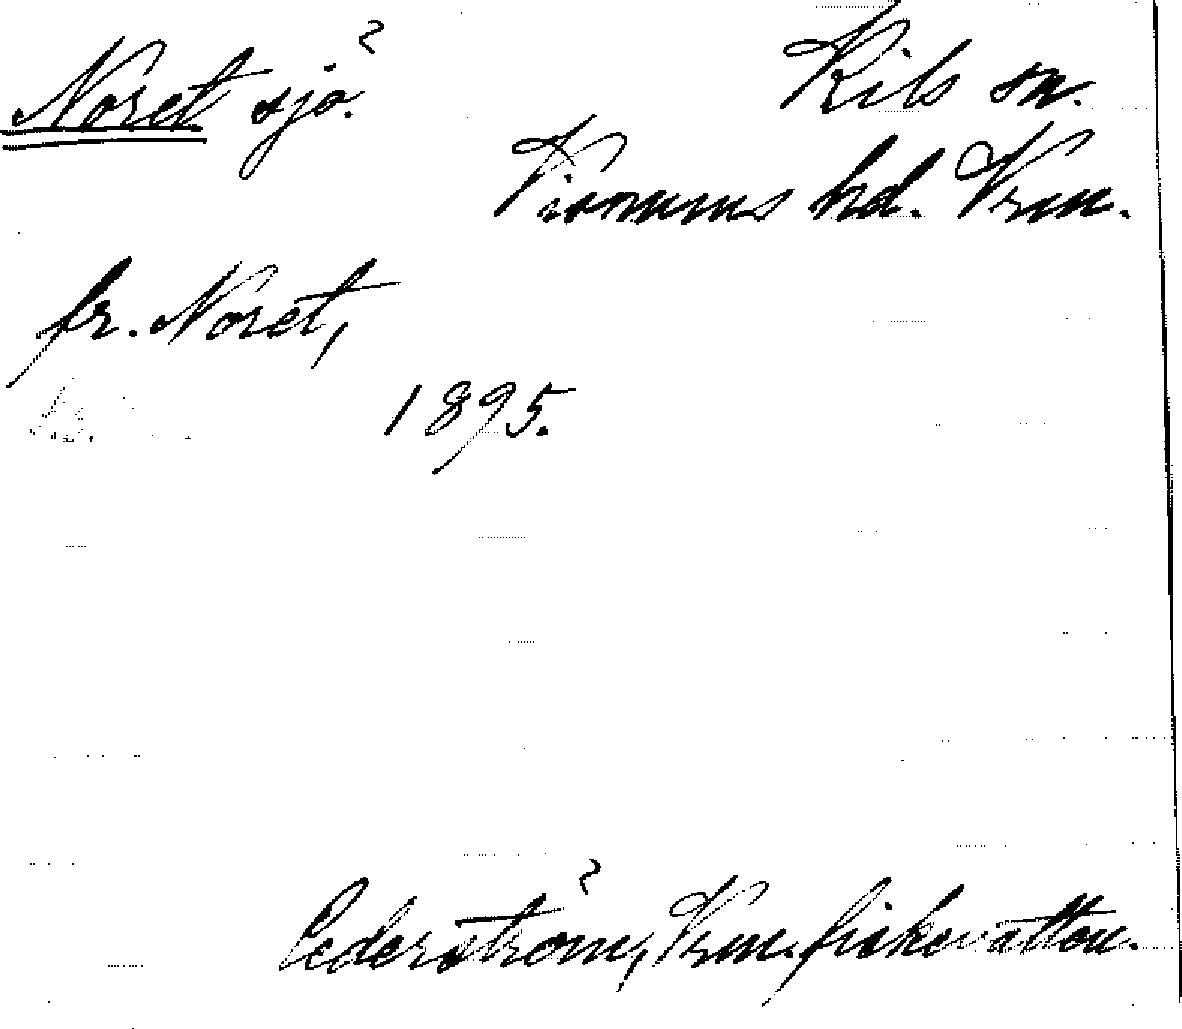 Noret sjö. Kils sn.
Visnums hd. Vrm.
fr. Noret,
1895.
Cederström, Vrm. fiskevatten.